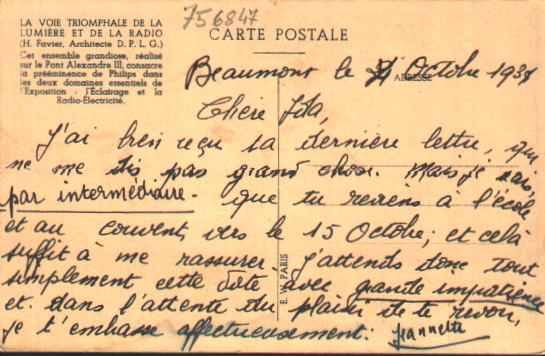 LA VOIE TRIOMPHALE DE LA
LUMIÈRE ET DE LA RADIO
(H. Favier, Architecte D. P. L. G.)
Cet ensemble grandiose, réalisé
sur le Pont Alexandre III, consacre
la prééminence de Philips dans
les deux domaines essentiels de
l'Exposition : l'Éclairage et la
Radio-Électricité.
756847
CARTE POSTALE
ADRESSE
Beaumont le Octobre 1937
Chère
J'ai bien reçu ta dernière lettre, qui
ne me dis pas grand chose. Mais je sais,
par intermédiaire. que tu reviens à l'école
et au couvent, vers le 15 Octobre; et celà
suffit à me rassurer. J'attends donc tout
simplement cette date avec grande impatience
et dans l'attente du plaisir de te revoir,
je t'embrasse affectueusement. Jeannette
E. P. PARIS